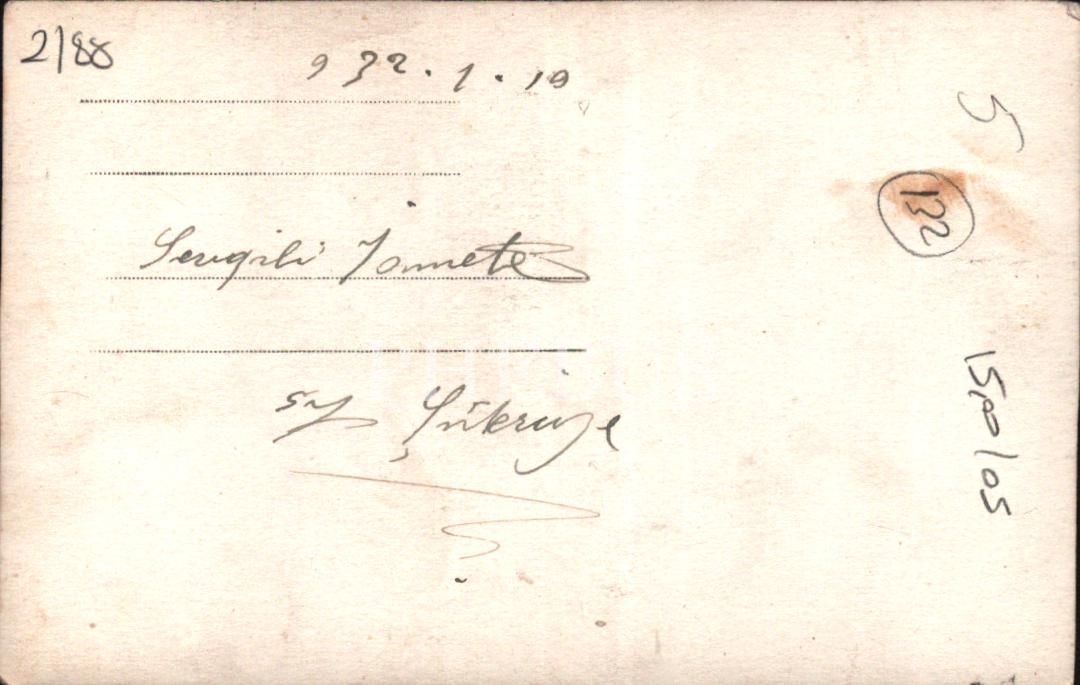 2/88
932.1.10
5
132
Sevgili İsmete
Şükriye
15,00/05